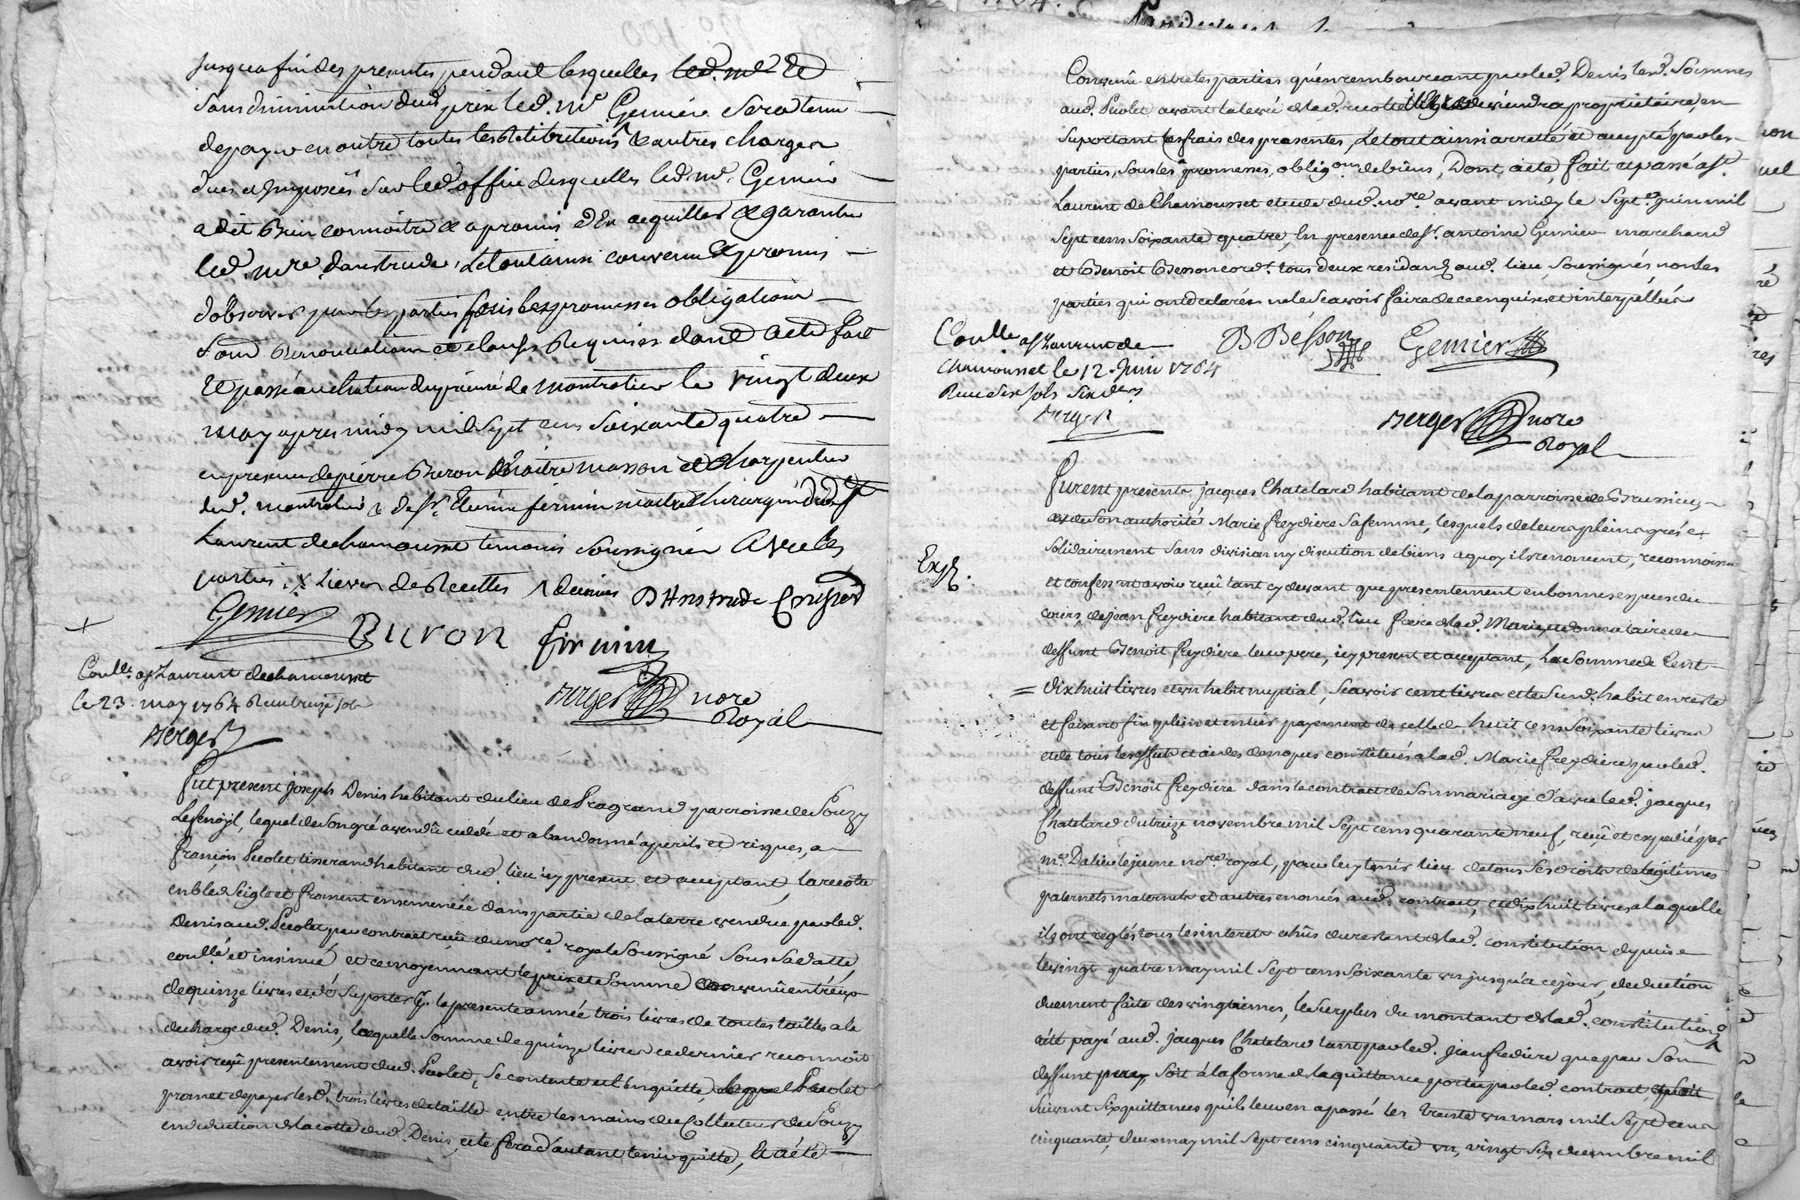 Jusqua fin des presentes pendant lesquelles
sans diminution dud. prix led. Mre Gemier sera tenu
de payer en outre toutes les Retributions & autres charges
dues et Imposées sur led. office desquelles led. mr. Gemier
a dit Bien connoitre & a promis d'En acquitter & garantir
led. mre. Danstrude, Le tout ainsi convenu & promis
d'observer par les parties sous les promesses obligations
Renonciations et clauses Requises dont acte fait
et passé au chateau du prieuré de montrotier le vingt deux
may apres midy mil sept cens soixante quatre
en presence de pierre Buron Maitre masson et charpentier
dud. montrotier & de sr. Etienne firmin maitre chirurgien dud. st
Laurent de chamousset temoins soussignés avec les
parties. x Lieves de Recettes
Gemier Buron firmin
Coullé a st Laurent de chamousset
le 23. may 1764 Reçu treize sols
Berger
Berger nore
Royal
Fut present joseph Denis habitant du lieu de paroisse de Souzy
L'argentière, lequel de son gré a vendû cedé et abandonné a perils et risques, a
françois Péolet tisserand habitant dud. lieu icy present et acceptant, la recolte
en bled seigle et froment ensemencée dans partie de la terre vendue par led.
Denis aud. Péolet par contract reçû du nore. royal soussigné sous sa datte,
coullé et insinué et ce moyennant le prix et somme convenû entr'eux
de quinze livres et de suporter pr. la presente année trois livres de toutes tailles a la
decharge dud. Denis, laquelle somme de quinze livres ce dernier reconnoit
avoir reçû presentement dud. Péolet, se contente et l'en quitte, Péolet
promet de payer lesd. trois livres de taille entre les mains du Collecteur de Souzy
en deduction de la cotte dud. Denis, et le fera d'autant tenir quitte, il a été
Convenû entre les parties qu'en rembourceant par led. Denis lesd. sommes
aud. Péolet avant la levée de lad. recolte il en deviendra proprietaire, en
suportant les frais des presentes, Le tout ainsi arretté et accepté par les
parties, sous les promesses, obligons de biens, Dont acte, fait et passé a st.
Laurent de Chamousset etude dud. nore avant midy le sept juin mil
sept cens soixante quatre, En presence de sr. antoine Gemier marchand
et Benoit Besson cord.r tous deux residants aud. lieu, soussignés non les
parties qui ont declarés ne le scavoir faire de ce enquises et interpellées
Coullé a st Laurent de
Chamousset le 12. Juin 1764
Reçu six sols six drs
Berger
B Besson Gemier
Berger nore
Royal
Furent presents jacques Chatelard habitant de la parroisse de Brussieu
et de son authorité Marie freydiere sa femme, lesquels de leurs plein gré et
solidairement sans division ny discution de biens a quoy ils renoncent, reconnoissent
Exp.
et confessent avoir reçû tant cy devant que presentement en bonnes especes du
cours, de jean freydiere habitant dud. lieu frere de lad. Marie, et donnataire de
deffunt Benoit freydiere leur pere, icy present et acceptant, La somme de Cent
dix huit livres et un habit nuptial, scavoir cent livres et le susd. habit en reste
et faisant fin, plein et entier payement de celle de huit cens soixante livres
et de tous les effets et aides de nopces constitués a lad. Marie freydiere par led.
deffunt Benoit freydiere dans le contract de son mariage d'avec led. jacques
Chatelard du treize novembre mil sept cens quarante neuf, reçû et expedié par
me. Dalin le jeune nore. royal, pour luy tenir lieu de tous ses droits de legitimes
paternels maternels et autres enoncés aud. contract, et dix huit livres a laquelle
ils ont reglés tous les interets echûs du restant de lad. constitution depuis
le vingt quatre may mil sept cens soixante un jusqu'a ce jour, deduction
duement faite des vingtiemes, le surplus du montant de lad. constitution
eté payé aud. jacques Chatelard tant par led. jean fredière que par son
deffunt pere, soit a la forme de la quittance portée par led. contract,
suivant six quittances qu'ils leur en a passé les trente un mars mil sept cens
cinquante, deux may mil sept cens cinquante un, vingt six decembre mil